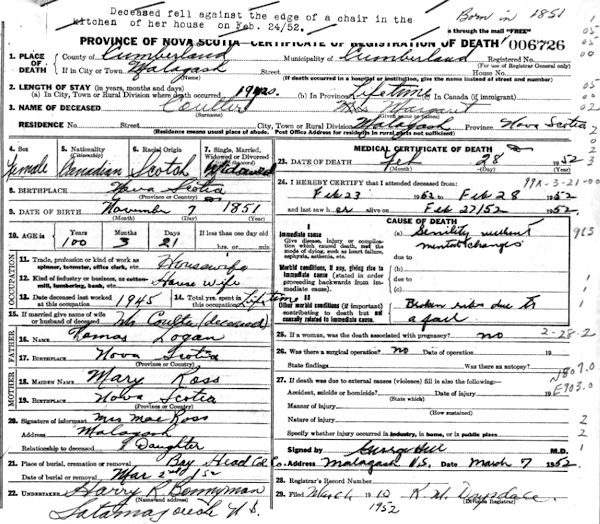 Deceased fell against the edge of a chair in the
kitchen of her house on Feb. 24/52.
Born in 1851
through the mail "FREE"
PROVINCE OF NOVA SCOTIA—CERTIFICATE OF REGISTRATION OF DEATH
006726
1. PLACE OF DEATH
County of Cumberland
Municipality of Cumberland
Registered No.
(For use of Registrar General only)
If in City or Town Malagash Street House No.
(If death occurred in a hospital or institution, give name instead of street and number)
2. LENGTH OF STAY (in years, months and days)
(a) In City, Town or Rural Division where death occurred 19 yrs. (b) In Province Lifetime (c) In Canada (if immigrant)
3. NAME OF DECEASED Coulter Mrs Margaret
(Surname) (Given name or names)
RESIDENCE No. Street City, Town or Rural Division Malagash Province Nova Scotia
(Residence means usual place of abode. Post Office Address for residents in rural parts not sufficient)
4. Sex
Female
5. Nationality
(Citizenship)
Canadian
6. Racial Origin
Scotch
7. Single, Married, Widowed or Divorced
Widowed
8. BIRTHPLACE Nova Scotia
(Province or Country)
9. DATE OF BIRTH November 7 1851
(Month) (Day) (Year)
10. AGE in
Years Months Days If less than one day
100 3 21 hrs. or min.
OCCUPATION
11. Trade, profession or kind of work as spinner, teamster, office clerk, etc. Housewife
12. Kind of industry or business, as cotton-mill, lumbering, bank, etc. House wife
13. Date deceased last worked at this occupation 1945
14. Total yrs. spent in this occupation Lifetime
15. If married give name of wife or husband of deceased Mr Coulter (deceased)
FATHER
16. Name Thomas Logan
17. Birthplace Nova Scotia
(Province or Country)
MOTHER
18. Maiden Name Mary Ross
19. Birthplace Nova Scotia
(Province or Country)
20. Signature of informant Mrs Mae Ross
Address Malagash
Relationship to deceased Daughter
21. Place of burial, cremation or removal Bay Head Col. Co.
Date of burial or removal Mar 2nd 1952
22. UNDERTAKER Harry R Bonnyman
Tatamagouche N.S.
MEDICAL CERTIFICATE OF DEATH
23. DATE OF DEATH Feb 28 1952
(Month) (Day) (Year)
24. I HEREBY CERTIFY that I attended deceased from:
99X-3-21-00
Feb 23 1952 to Feb 28 1952
and last saw her alive on Feb 27/52 1952.
CAUSE OF DEATH
Immediate cause
Give disease, injury or complication which caused death, not the mode of dying, such as heart failure, asphyxia, asthenia, etc.
(a) Senility without mental changes
due to
Morbid conditions, if any, giving rise to immediate cause (stated in order proceeding backwards from immediate cause).
(b)
due to
(c)
Other morbid conditions (if important) contributing to death but not causally related to immediate cause.
Broken ribs due to
a fall
25. If a woman, was the death associated with pregnancy? no
2-28-2
26. Was there a surgical operation? no Date of operation 19
State findings Was there an autopsy?
N807.0
27. If death was due to external causes (violence) fill in also the following:
E903.0
Accident, suicide or homicide? Date of injury 19
(State which)
Manner of injury
(How sustained)
Nature of injury
Specify whether injury occurred in industry, in home, or in public place
Signed by George Hill M.D.
Address Malagash N.S. Date March 7 1952
28. Registrar's Record Number
29. Filed March 10 1952 K. M. Drysdale